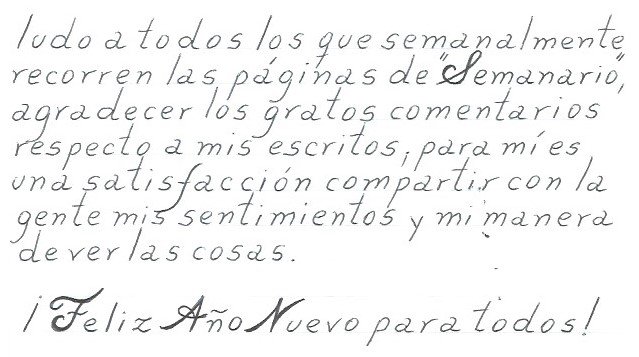 ludo a todos los que semanalmente
recorren las páginas de "Semanario",
agradecer los gratos comentarios
respecto a mis escritos, para mí es
una satisfacción compartir con la
gente mis sentimientos y mi manera
de ver las cosas.
¡Feliz Año Nuevo para todos!